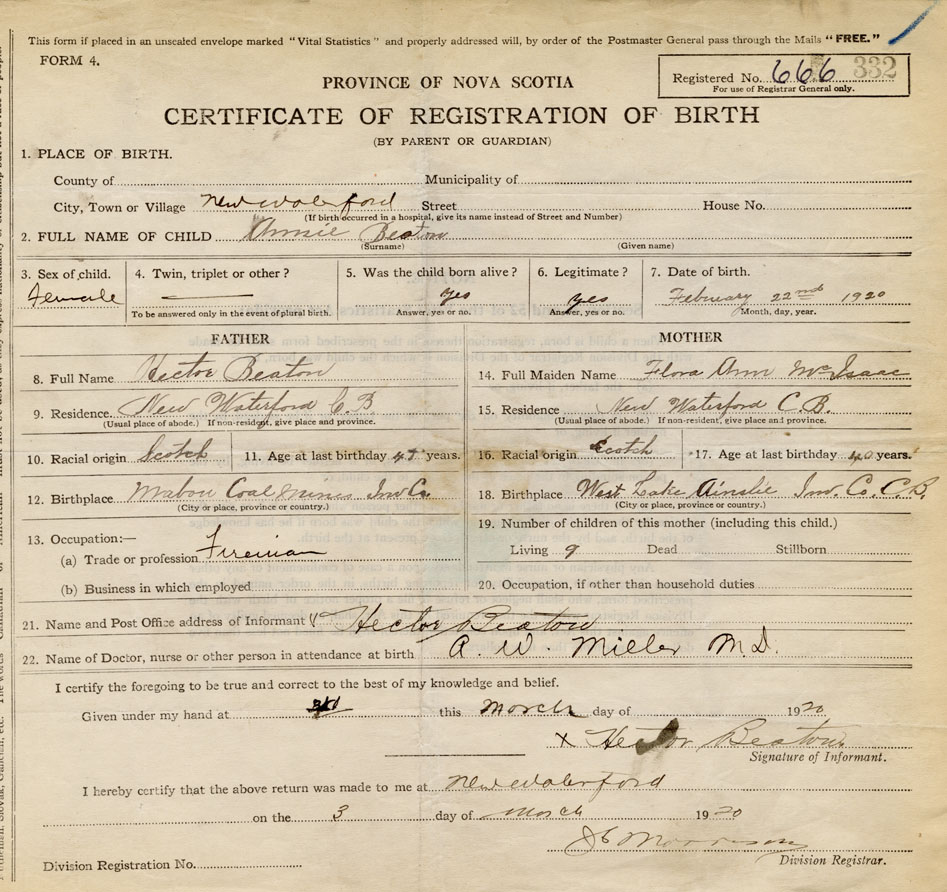 This form if placed in an unsealed envelope marked "Vital Statistics" and properly addressed will, by order of the Postmaster General pass through the Mails "FREE."
FORM 4.
Registered No. 666 332
For use of Registrar General only.
PROVINCE OF NOVA SCOTIA
CERTIFICATE OF REGISTRATION OF BIRTH
(BY PARENT OR GUARDIAN)
1. PLACE OF BIRTH.
County of Municipality of
City, Town or Village New Waterford Street House No.
(If birth occurred in a hospital, give its name instead of Street and Number)
2. FULL NAME OF CHILD Annie Beaton
(Surname) (Given name)
3. Sex of child. 4. Twin, triplet or other? 5. Was the child born alive? 6. Legitimate? 7. Date of birth.
Female yes yes February 22nd 1920
To be answered only in the event of plural birth. Answer, yes or no. Answer, yes or no. Month, day, year.
FATHER MOTHER
8. Full Name Hector Beaton 14. Full Maiden Name Flora Ann McIsaac
9. Residence. New Waterford C.B 15. Residence New Waterford C.B.
(Usual place of abode.) If non-resident, give place and province. (Usual place of abode.) If non-resident, give place and province.
10. Racial origin Scotch 11. Age at last birthday 47 years. 16. Racial origin Scotch 17. Age at last birthday 40 years.
12. Birthplace Mabou Coal Mines Inv Co. 18. Birthplace West Lake Ainslie Inv. Co. C.B.
(City or place, province or country.) (City or place, province or country.)
13. Occupation:— 19. Number of children of this mother (including this child.)
(a) Trade or profession Fireman Living 9 Dead Stillborn
(b) Business in which employed 20. Occupation, if other than household duties
21. Name and Post Office address of Informant Hector Beaton
22. Name of Doctor, nurse or other person in attendance at birth A. W. Miller M.D.
I certify the foregoing to be true and correct to the best of my knowledge and belief.
Given under my hand at 3rd this March day of 1920
x Hector Beaton
Signature of Informant.
I hereby certify that the above return was made to me at New Waterford
on the 3 day of March 1920
Morrison
Division Registration No. Division Registrar.